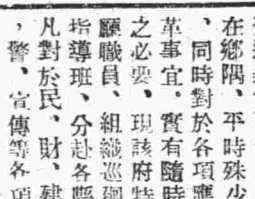 在鄉隅、平時殊少
、同時對於各項應
革事宜。實有隨時
之必要、現該府特
廳職員、組織巡廻
指導班、分赴各縣
凡對於民、財、建
，警、宣傳等各項